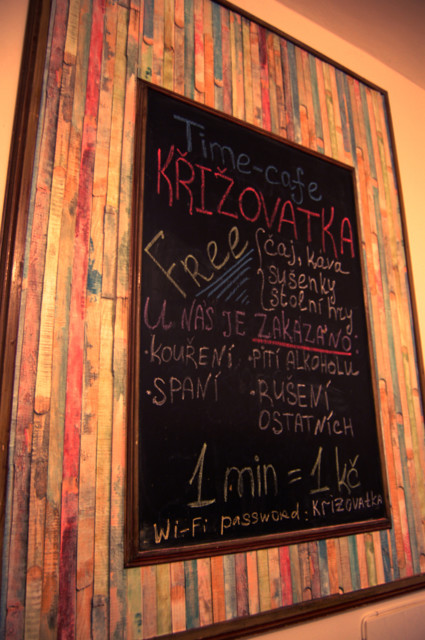 Time-cafe
KŘIŽOVATKA
FREE { čaj, káva
sušenky
stolní hry
U NÁS JE ZAKÁZÁNO:
·KOUŘENÍ ·PITÍ ALKOHOLU
·SPANÍ ·RUŠENÍ
OSTATNÍCH
1 min = 1 kč
Wi-Fi password: KŘIŽOVATKA